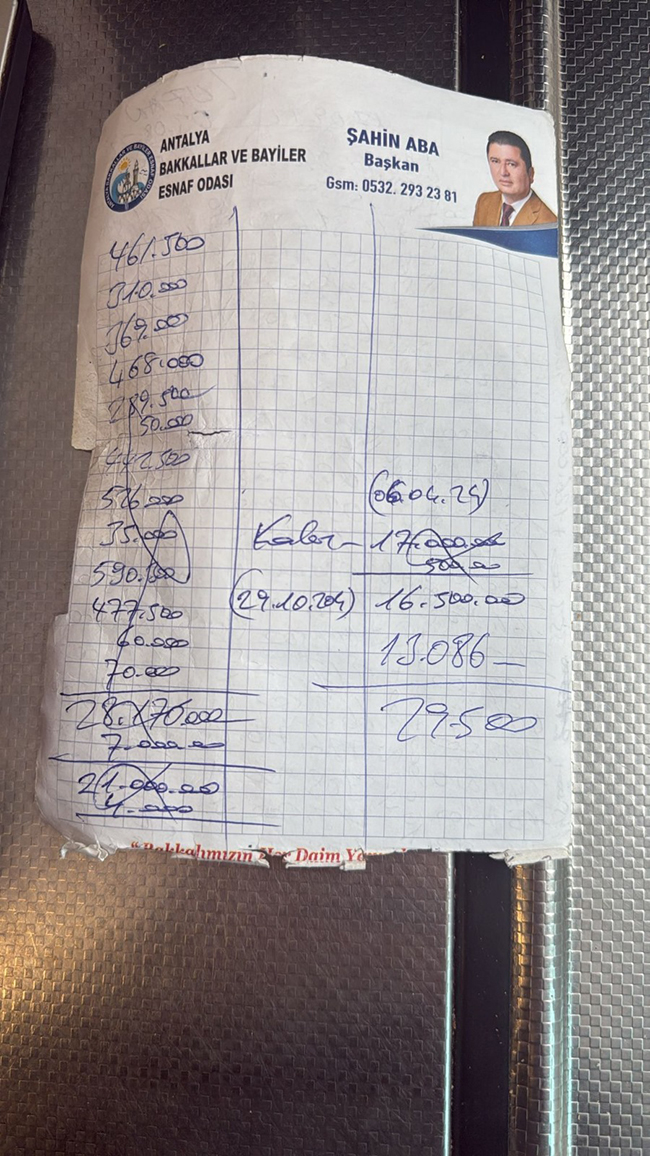 ANTALYA
BAKKALLAR VE BAYİLER
ESNAF ODASI
ŞAHİN ABA
Başkan
Gsm: 0532. 293 23 81
461.500
310.000
369.000
468.000
289.500
50.000
442.500
526.000
35.000
590.500
477.500
60.000
70.000
28.170.000
7.000.00
21.000.00
4.000
(06.04.24)
Kalan - 17.000.00
500.00
(29.10.204) 16.500.00
13.086 -
29.500
"Bakkalımızın Her Daim